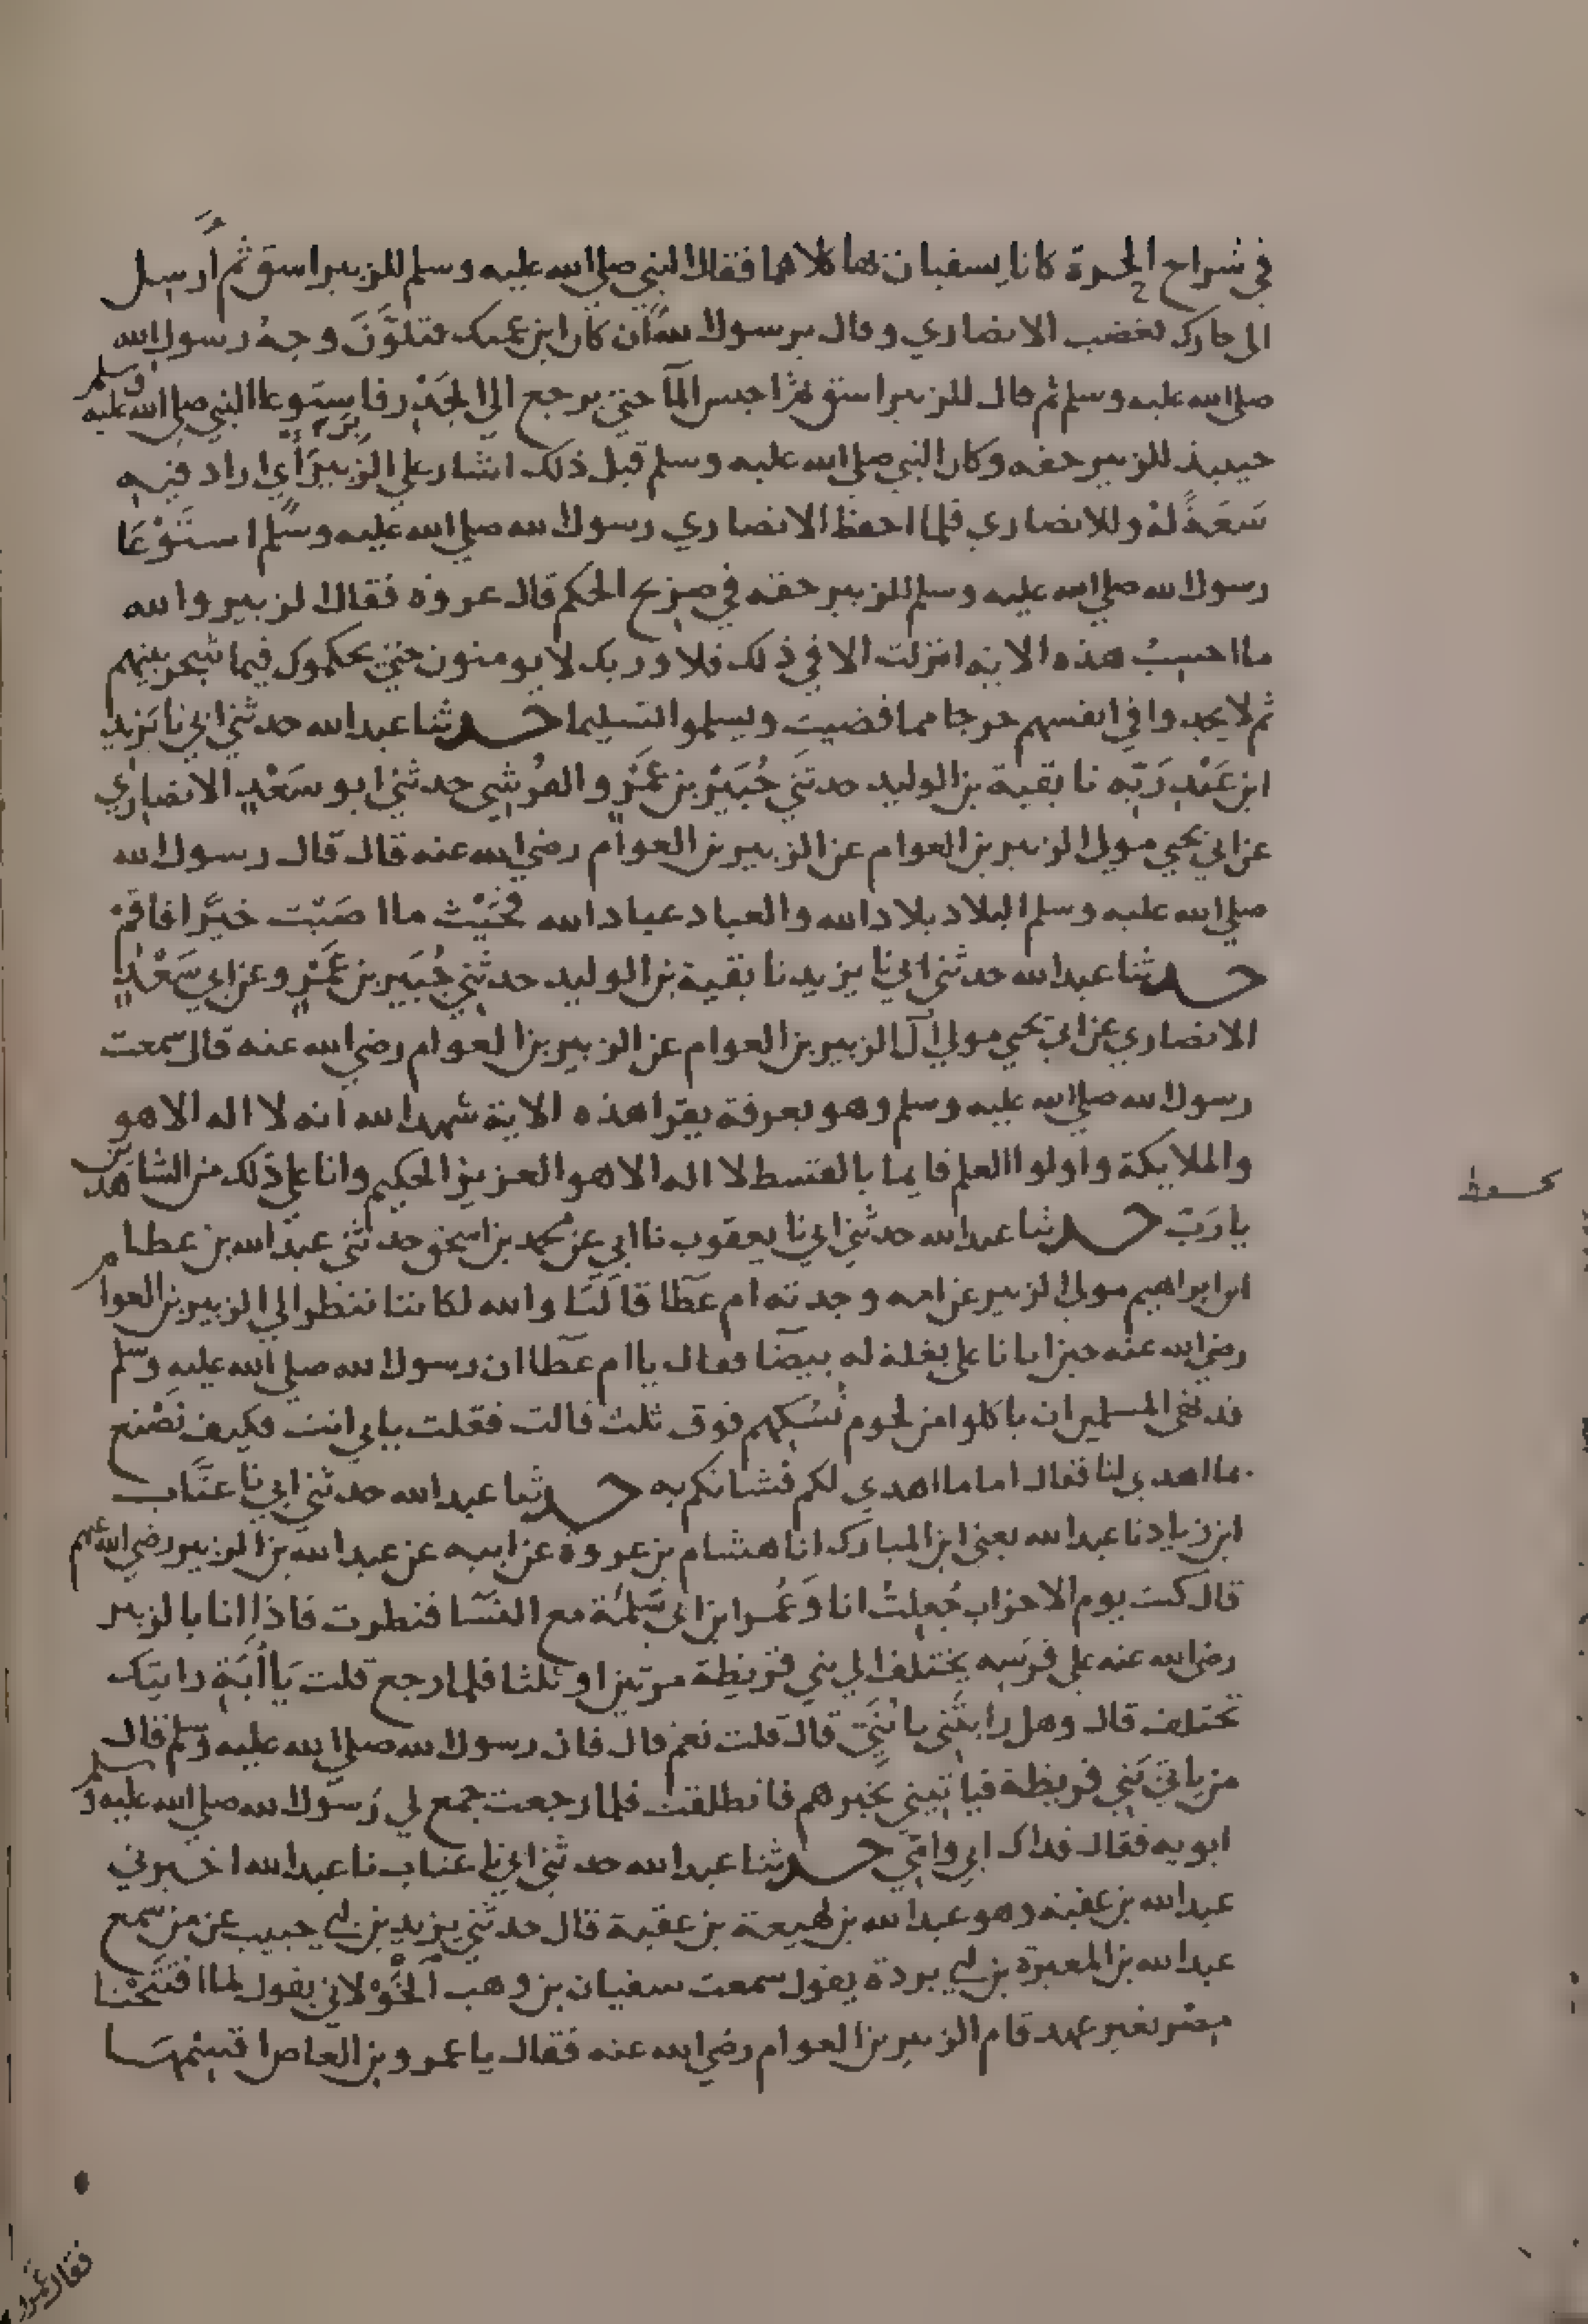 في شراج الحرة كانا يسقيان بها كلاهما فقال النبي صلى الله عليه وسلم للزبير اسق ثم أرسل
الى جارك فغضب الانصاري وقال يرسول الله أن كان ابن عمتك فتلَوَّنَ وجهُ رسول الله
صلى الله عليه وسلم ثم قال للزبير اسق ثم احبس المآ حتى يرجع الى الجَدْر فاستوعا النبي صلى الله عليه وسلم
حينيذ للزبير حقه وكان النبي صلى الله عليه وسلم قبل ذلك اشار على الزبير برَأيٍ اراد فيه
سَعَةً لهُ وللانصاري فلما احفظ الانصاري رسول الله صلى الله عليه وسلم استَوْعَا
رسول الله صلى الله عليه وسلم للزبير حقه في صريح الحكم قال عروة فقال الزبير والله
ما احسبُ هذه الاية انزلت الا في ذلك فلا وربك لا يومنون حتى يحكموك فيما شجر بينهم
ثم لا يجدوا في انفسهم حرجا مما قضيت ويسلموا تسليما حدثنا عبد الله حدثني ابي نا يَزيدُ
ابن عَبْدِ رَبِّه نا بقية بن الوليد حدثَني جُبَيْرُ بن عَمْرٍو القرَشي حدثني ابو سَعْدٍ الانصاري
عن ابي يحيى مولى ال الزبير بن العوام عن الزبير بن العوام رضي الله عنه قال قال رسول الله
صلى الله عليه وسلم البلاد بلاد الله والعباد عباد الله فحَيْثُ ما اصَبْت خيرًا فاقم
حدثنا عبد الله حدثني ابي نا يزيد نا بقية بن الوليد حدثني جُبَير بن عَمْرٍو عن ابي سَعْدٍ
الانصاري عن ابي يحيى مولى آل الزبير بن العوام عن الزبير بن العوام رضي الله عنه قال سمعت
رسول الله صلى الله عليه وسلم وهو بعرفة يقرا هذه الاية شهد الله انه لا اله الا هو
والملايكة واولوا العلم قايما بالقسط لا اله الا هو العزيز الحكيم وانا على ذلك من الشاهدين
يا رَبّ حدثنا عبد الله حدثني ابي نا يعقوب نا ابي عن محمد بن اسحق حدثني عبد الله بن عطا
ابن ابراهيم مولى الزبير عن امه وجدته ام عَطآ قالتَا والله لكاننا ننظر الى الزبير بن العوام
رضي الله عنه حين اتانا على بغلة له بيضآ فقال يا ام عطآ ان رسول الله صلى الله عليه وسلم
قد نهى المسلمين ان ياكلوا من لحوم نُسُكهم فوق ثلث قالت فقلت بابي انت فكيف نَصْنع
بما اهدي لنا فقال اما ما اهدي لكم فشانكم به حدثنا عبد الله حدثني ابي نا عتَّاب
ابن زياد نا عبد الله يعني ابن المبارك انا هشام بن عروة عن ابيه عن عبد الله بن الزبير رضي الله عنهم
قال كنت يوم الاحزاب جُعِلتُ انا وَعُمر ابن ابي سَلمَة مع النسآ فنظرت فاذا انا بالزبير
رضي الله عنه على فرَسِه يختلف الى بني قريظة مرتين او ثلثا فلما رجع قلت يَا أبَةِ رايتك
تختلف قال وهل رايتَني يا بُنَيَّ قال قلت نعم قال فان رسول الله صلى الله عليه وسلم قال
من ياتي بَني قريظة فياتِيني بخبرهم فانطلقت فلما رجعت جمع لي رَسول الله صلى الله عليه وسلم
ابويه فقال فداك ابي وامّي حدثنا عبد الله حدثني ابي نا عتاب نا عبد الله اخبرني
عبد الله بن عقبة وهو عبد الله بن لهيعة بن عقبة قال حدثني يزيد بن ابي حبيب عن من سمع
عبد الله بن المغيرة بن ابي بردة يقول سمعت سفيان بن وهب الْخَوْلاني يقول لما افتتَحْنا
مِصْر بغير عهد قام الزبير بن العوام رضي الله عنه فقال يا عمرو بن العاص اقسِمْهَا
فقال عَمرو